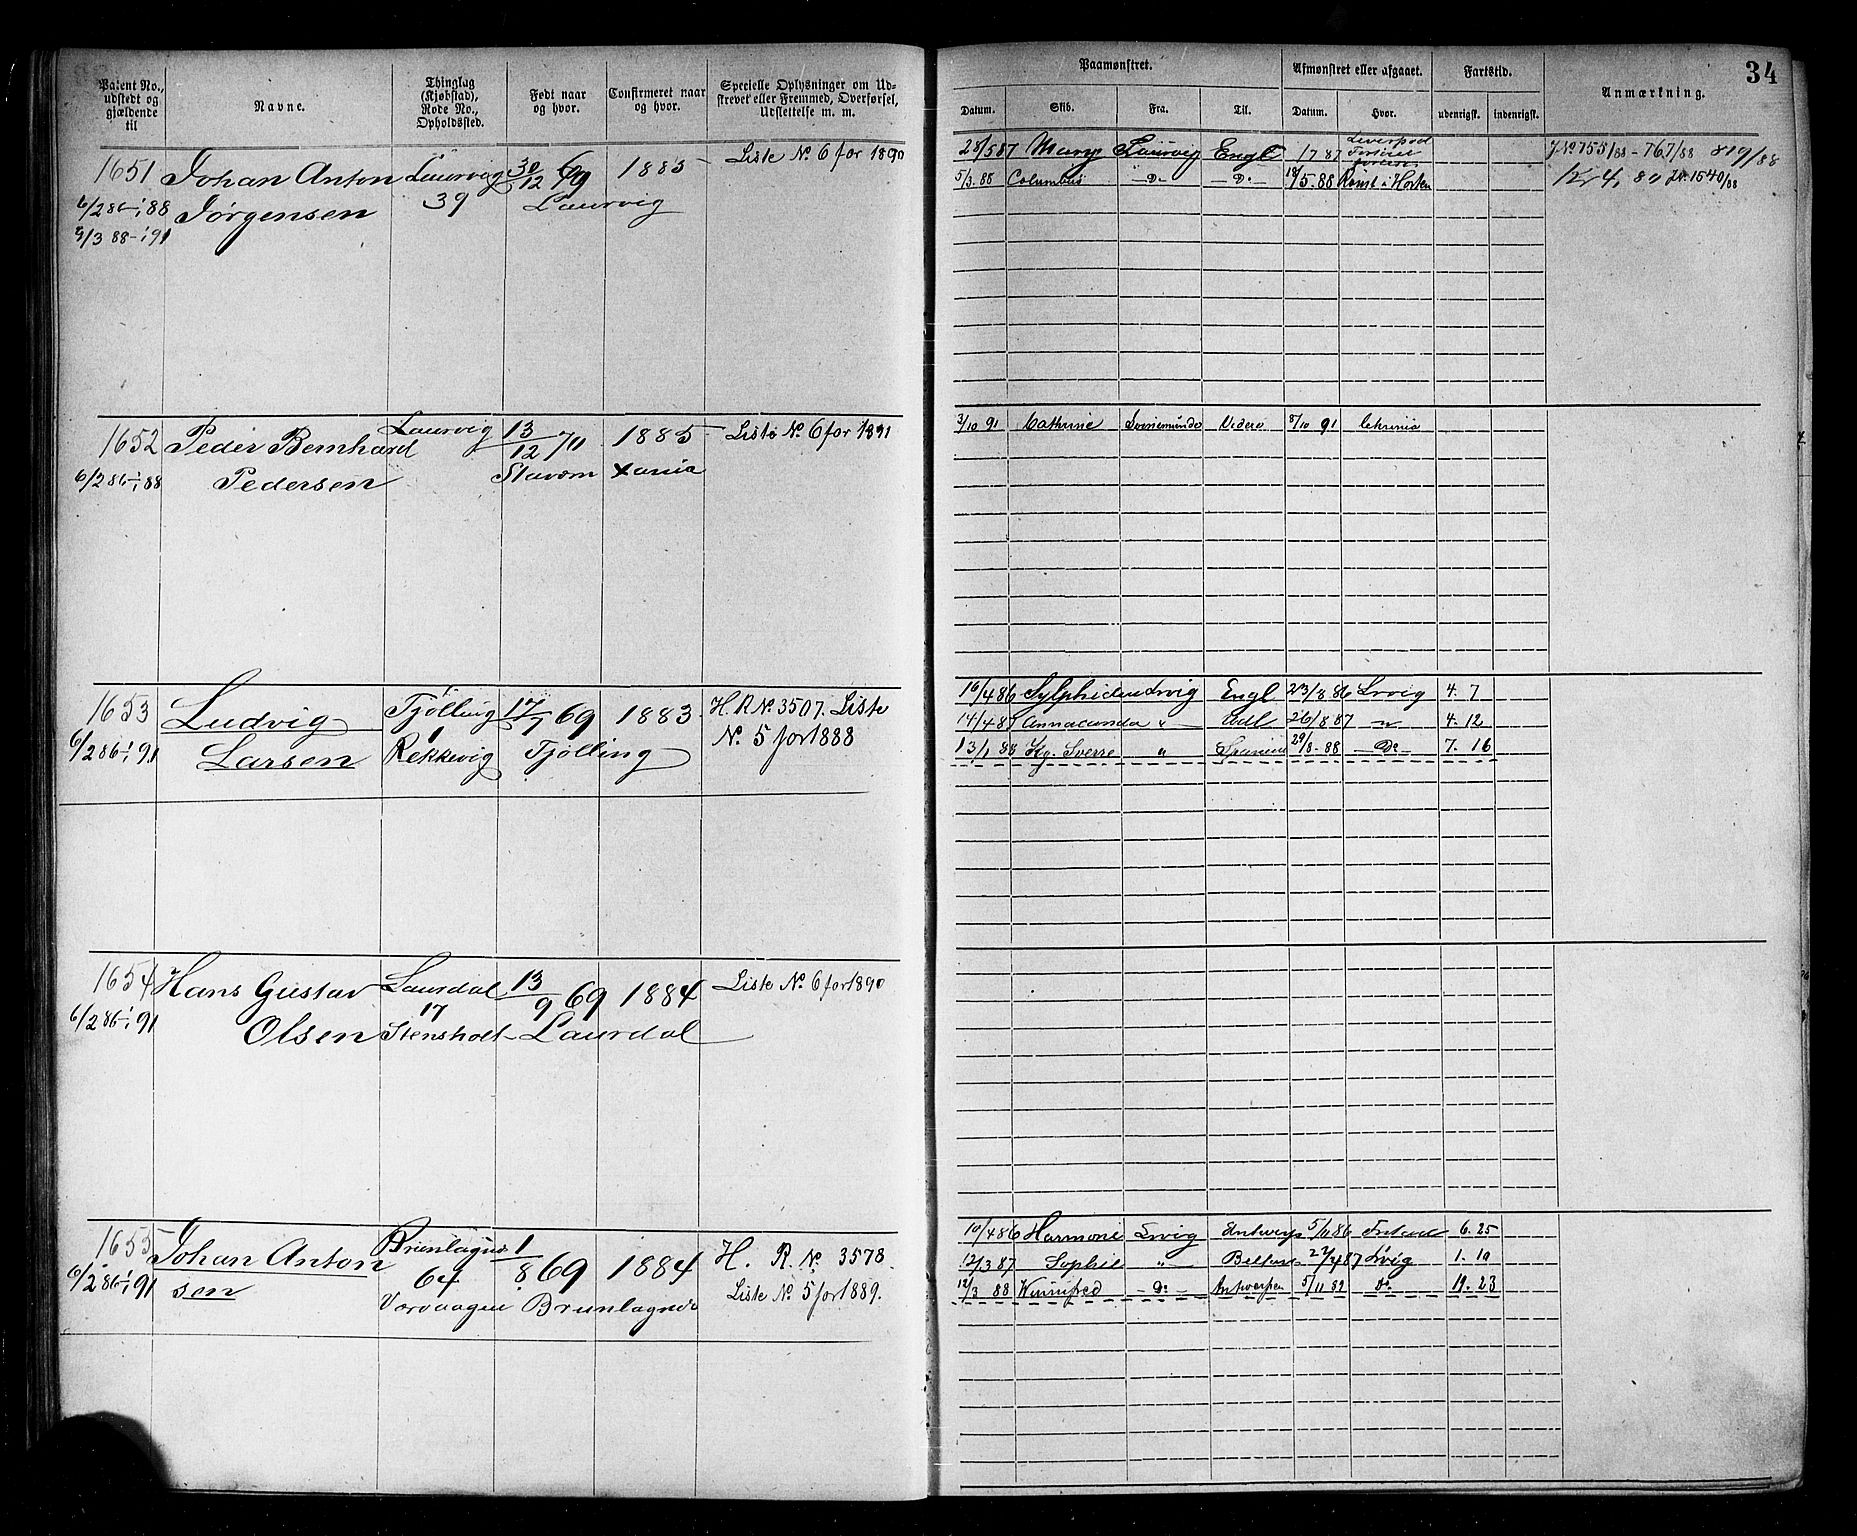 34
Patent No., udstedt og gjældende til
Navne.
Thinglag (Kjøbstad), Rode No., Opholdssted.
Født naar og hvor.
Confirmeret naar og hvor.
Specielle Oplysninger om Udskrevet eller Fremmed, Overførsel, Udslettelse m. m.
Paamønstret.
Afmønstret eller afgaaet.
Fartstid.
Anmærkning.
Datum. Skib. Fra. Til. Datum. Hvor. udenrigsk. indenrigsk.
1651 Johan Anton Laurvig 30/12 69 1885 Liste No. 6 for 1890
6/2 86 - 1/1 88 Jørgensen 39 Laurvig
5/3 88 - 1/1 91
28/5 87 Mary Laurvig Engl 1/7 87 Liverpool
5/3. 88 Columbus - Do - - Do - 18/5. 88 Rømt i Horten
J No 755/88 - 767/88 819/88
Kr 4, 80 JN. 1540/88
1652 Peder Bernhard Laurvig 13/12 70 1885 Liste No. 6 for 1891
6/2 86 - 1/1 88 Pedersen Stavern Xania
3/10 91 Cathrine Svinemünde 8/10 91 Chrinia
1653 Ludvig Tjølling 17/7 69 1883 H. R No. 3507. Liste
6/2 86 - 1/1 91 Larsen 1 Rekkevig Tjølling No. 5 for 1888
16/4 86 Sylphiden Lrvig Engl 23/8 86 Lrvig 4. 7
14/4 87 Annacunda " 26/8 87 " 4. 12
13/1 88 Kg. Sverre " 29/8 - 88 - Do - 7. 16
1654 Hans Gustav Laurdal 13/9 69 1884 Liste No. 6 for 1890
6/2 86 - 1/1 91 Olsen 17 Stensholt Laurdal
1655 Johan Anton Brunlagnes 1/8 69 1884 H. R. No. 3578.
6/2 86 - 1/1 91 sen 64 Brunlagnes Liste No. 5 for 1889.
10/4 86 Harmonie Lrvig Antwerp 6. 25
12/3 87 Sophie " 27/4 87 Lrvig 1. 10
12/3 88 Winnifred - Do - Antwerpen Do 19. 23